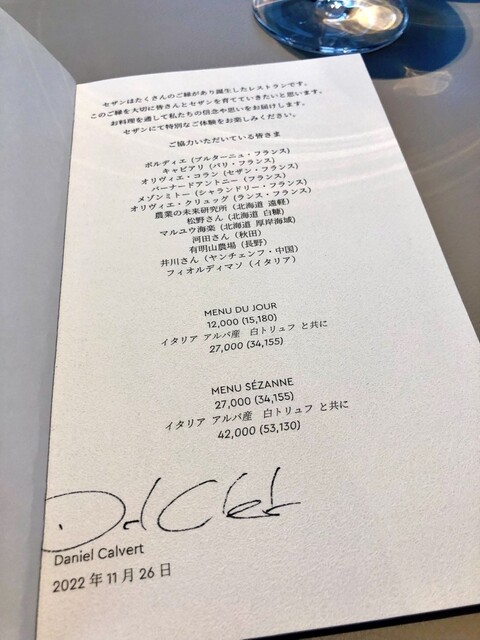 セザンはたくさんのご縁があり誕生したレストランです。
このご縁を大切に皆さんとセザンを育てていきたいと思います。
お料理を通して私たちの信念や思いをお届けします。
セザンにて特別なご体験をお楽しみください。
ご協力いただいている皆さま
ボルディエ (ブルターニュ・フランス)
キャビアリ (パリ・フランス)
オリヴィエ・コラン (セザン・フランス)
バーナードアントニー (フランス)
メゾンミトー (シャランドリー・フランス)
オリヴィエ・クリュッグ (ランス・フランス)
農業の未来研究所 (北海道 遠軽)
松野さん (北海道 白糠)
マルユウ海楽 (北海道 厚岸海域)
河田さん (秋田)
有明山農場 (長野)
井川さん (ヤンチェンフ・中国)
フィオルディマソ (イタリア)
MENU DU JOUR
12,000 (15,180)
イタリア アルバ産 白トリュフ と共に
27,000 (34,155)
MENU SÉZANNE
27,000 (34,155)
イタリア アルバ産 白トリュフ と共に
42,000 (53,130)
Daniel Calvert
2022年11月26日